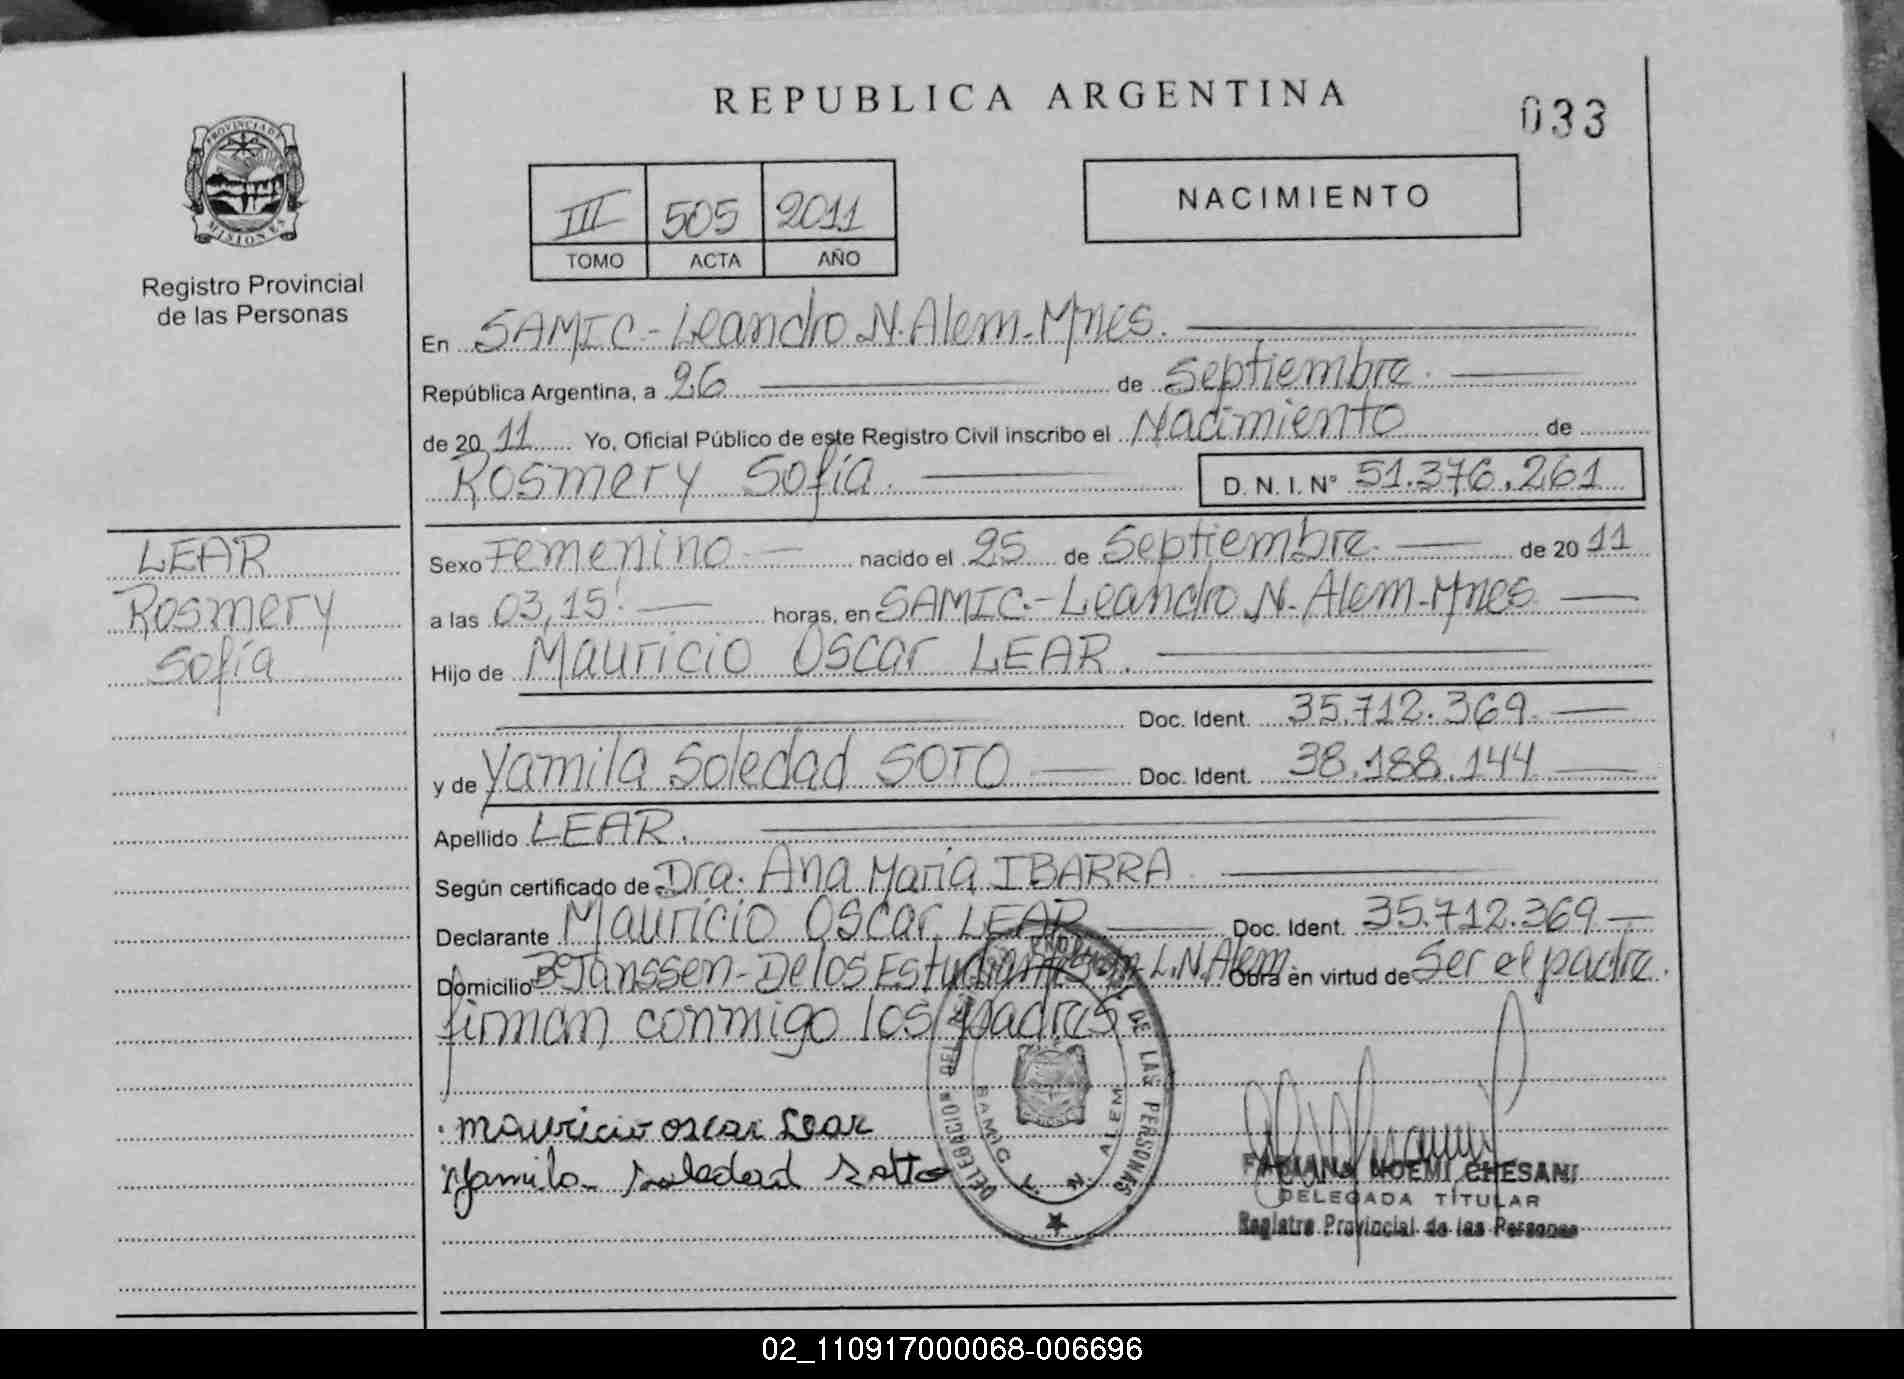 REPUBLICA ARGENTINA
033
PROVINCIA DE
MISIONES
Registro Provincial
de las Personas
III 505 2011
TOMO ACTA AÑO
NACIMIENTO
En SAMIC - Leandro N. Alem - Mnes.
República Argentina, a 26 de Septiembre.
de 20 11 Yo, Oficial Público de este Registro Civil inscribo el Nacimiento de
Rosmery Sofía. D. N. I. Nº 51.376.261
LEAR
Rosmery
Sofía
Sexo Femenino nacido el 25 de Septiembre. de 20 11
a las 03,15. horas, en SAMIC.- Leandro N. Alem - Mnes
Hijo de Mauricio Oscar LEAR.
Doc. Ident. 35.712.369.
y de Yamila Soledad SOTO Doc. Ident. 38.188.144
Apellido LEAR.
Según certificado de Dra. Ana María IBARRA
Declarante Mauricio Oscar LEAR Doc. Ident. 35.712.369
Domicilio Bº Janssen - De los Estudiantes L.N. Alem Obra en virtud de Ser el padre.
firman conmigo los padres
mauricio oscar Lear
Yamila Soledad Sotto
DELEGACION DEL REG. PROVINCIAL DE LAS PERSONAS
SAMIC L. N. ALEM
FABIANA NOEMI CHESANI
DELEGADA TITULAR
Registro Provincial de las Personas
02_110917000068-006696